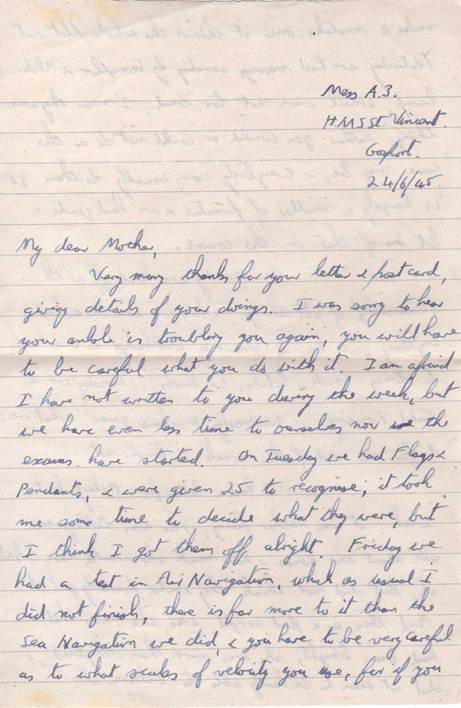 Mess A3.
HMS St. Vincent.
Gosport.
24/6/45.
My dear Mocha,
Very many thanks for your letter & postcard,
giving details of your doings. I was sorry to hear
your ankle is troubling you again, you will have
to be careful what you do with it. I am afraid
I have not written to you during the week, but
we have even less time to ourselves now the
exams have started. On Tuesday we had Flags &
Pendants, & were given 25 to recognise; it took
me some time to decide what they were, but
I think I got them off alright. Friday we
had a test in Air Navigation, which as usual I
did not finish, there is far more to it than the
Sea Navigation we did, & you have to be very careful
as to what scales of velocity you use, for if you